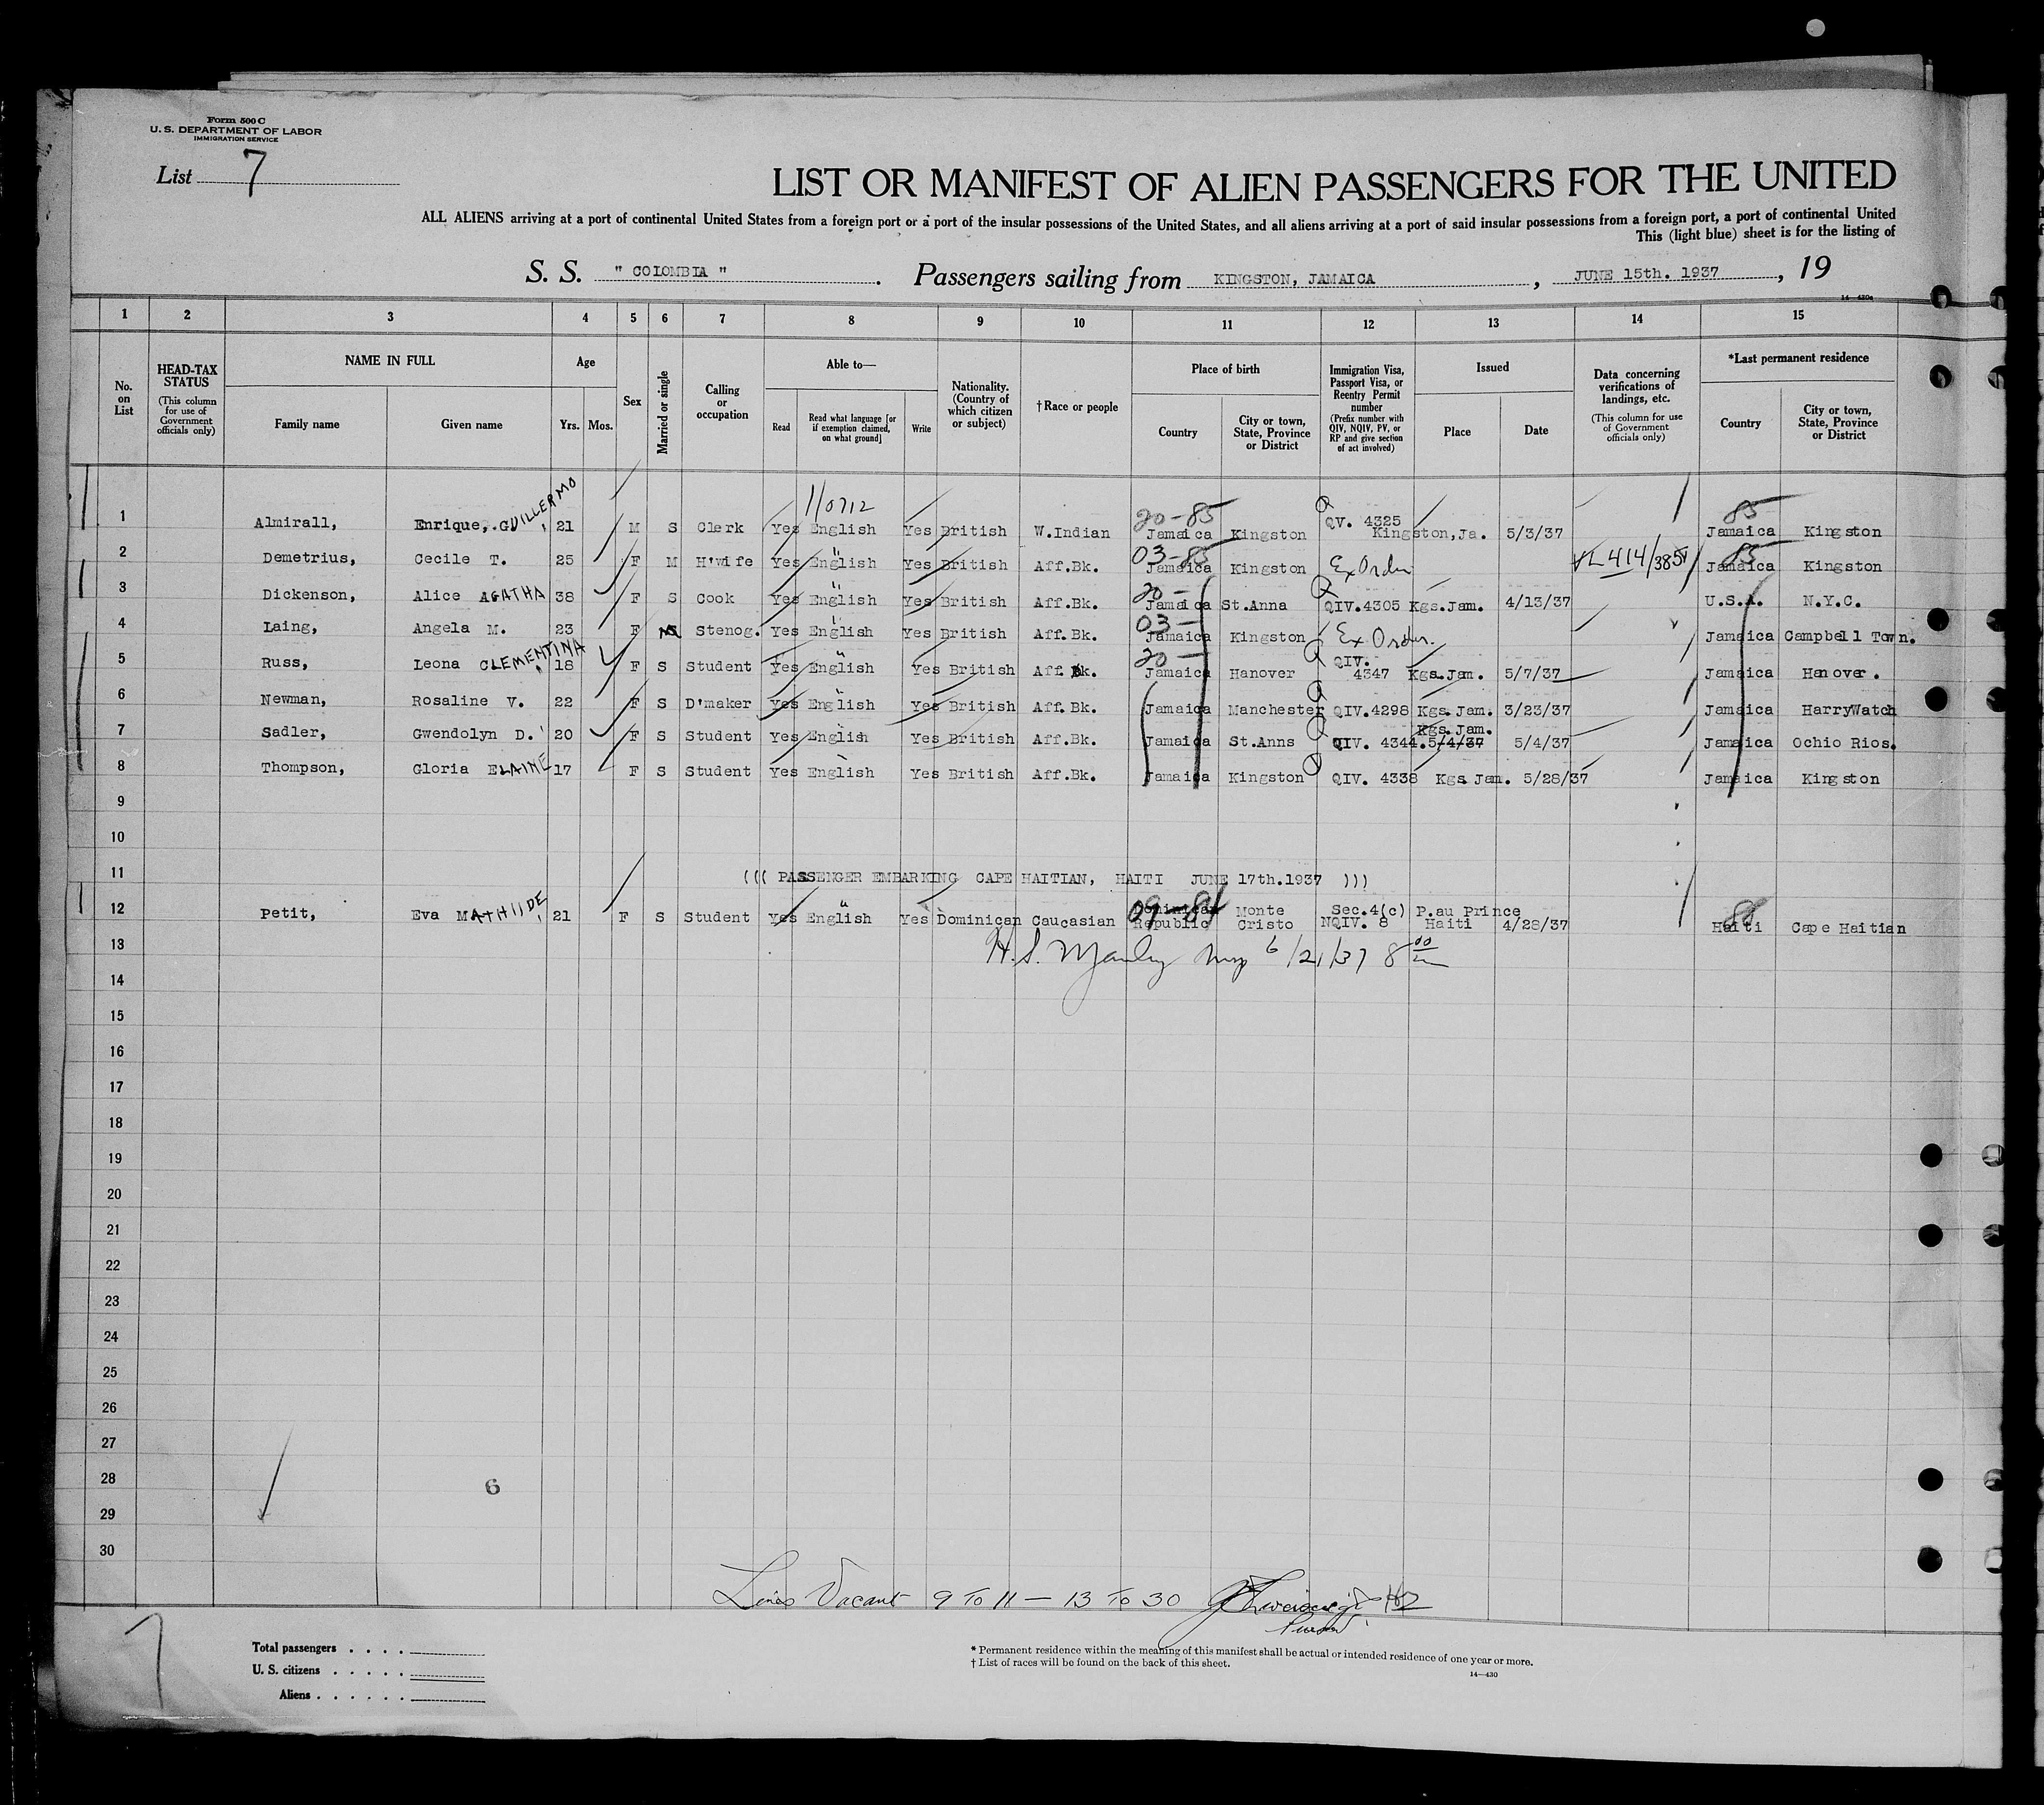 Form 500 C
U. S. DEPARTMENT OF LABOR
IMMIGRATION SERVICE
List 7
LIST OR MANIFEST OF ALIEN PASSENGERS FOR THE UNITED
ALL ALIENS arriving at a port of continental United States from a foreign port or a port of the insular possessions of the United States, and all aliens arriving at a port of said insular possessions from a foreign port, a port of continental United
This (light blue) sheet is for the listing of
S. S. " COLOMBIA ". Passengers sailing from KINGSTON, JAMAICA, JUNE 15th. 1937, 19
14—430a
1 2 3 4 5 6 7 8 9 10 11 12 13 14 15
No. on List
HEAD-TAX STATUS (This column for use of Government officials only)
NAME IN FULL
Family name Given name
Age
Yrs. Mos.
Sex
Married or single
Calling or occupation
Able to—
Read Read what language [or if exemption claimed, on what ground] Write
Nationality. (Country of which citizen or subject)
† Race or people
Place of birth
Country City or town, State, Province or District
Immigration Visa, Passport Visa, or Reentry Permit number (Prefix number with QIV, NQIV, PV, or RP and give section of act involved)
Issued
Place Date
Data concerning verifications of landings, etc. (This column for use of Government officials only)
*Last permanent residence
Country City or town, State, Province or District
110712
20-85 85
1 Almirall, Enrique, .GUILLERMO 21 M S Clerk Yes English Yes British W.Indian Jamaica Kingston QV. 4325 Kingston,Ja. 5/3/37 Jamaica Kingston
03-85 85
2 Demetrius, Cecile T. 25 F M H'wife Yes English Yes British Aff.Bk. Jamaica Kingston Ex Order VL 414/385 Jamaica Kingston
20 —
3 Dickenson, Alice AGATHA 38 F S Cook Yes English Yes British Aff.Bk. Jamaica St.Anna QIV.4305 Kgs.Jam. 4/13/37 U.S.A. N.Y.C.
03 —
4 Laing, Angela M. 23 F Stenog. Yes English Yes British Aff.Bk. Jamaica Kingston Ex Order. Jamaica Campbell Town.
20 —
5 Russ, Leona CLEMENTINA 18 F S Student Yes English Yes British Aff.Bk. Jamaica Hanover QIV. 4347 Kgs.Jam. 5/7/37 Jamaica Hanover.
6 Newman, Rosaline V. 22 F S D'maker Yes English Yes British Aff.Bk. Jamaica Manchester QIV.4298 Kgs.Jam. 3/23/37 Jamaica HarryWatch
7 Sadler, Gwendolyn D. 20 F S Student Yes English Yes British Aff.Bk. Jamaica St.Anns QIV. 4344.5/4/37 Kgs.Jam. 5/4/37 Jamaica Ochio Rios.
8 Thompson, Gloria ELAINE 17 F S Student Yes English Yes British Aff.Bk. Jamaica Kingston QIV. 4338 Kgs.Jam. 5/28/37 Jamaica Kingston
9
10
11 ((( PASSENGER EMBARKING CAPE HAITIAN, HAITI JUNE 17th.1937 )))
09-84
12 Petit, Eva MATHILDE 21 F S Student Yes English Yes Dominican Caucasian Dominican Republic Monte Cristo Sec.4(c) NQIV. 8 P.au Prince Haiti 4/28/37 Haiti Cape Haitian
13 H. S. Manley 6/21/37 8
14
15
16
17
18
19
20
21
22
23
24
25
26
27
28 6
29
30
Lines Vacant 9 To 11 — 13 To 30
Purser
7
Total passengers . . . .
U. S. citizens . . . . .
Aliens . . . . . .
* Permanent residence within the meaning of this manifest shall be actual or intended residence of one year or more.
† List of races will be found on the back of this sheet.
14—430